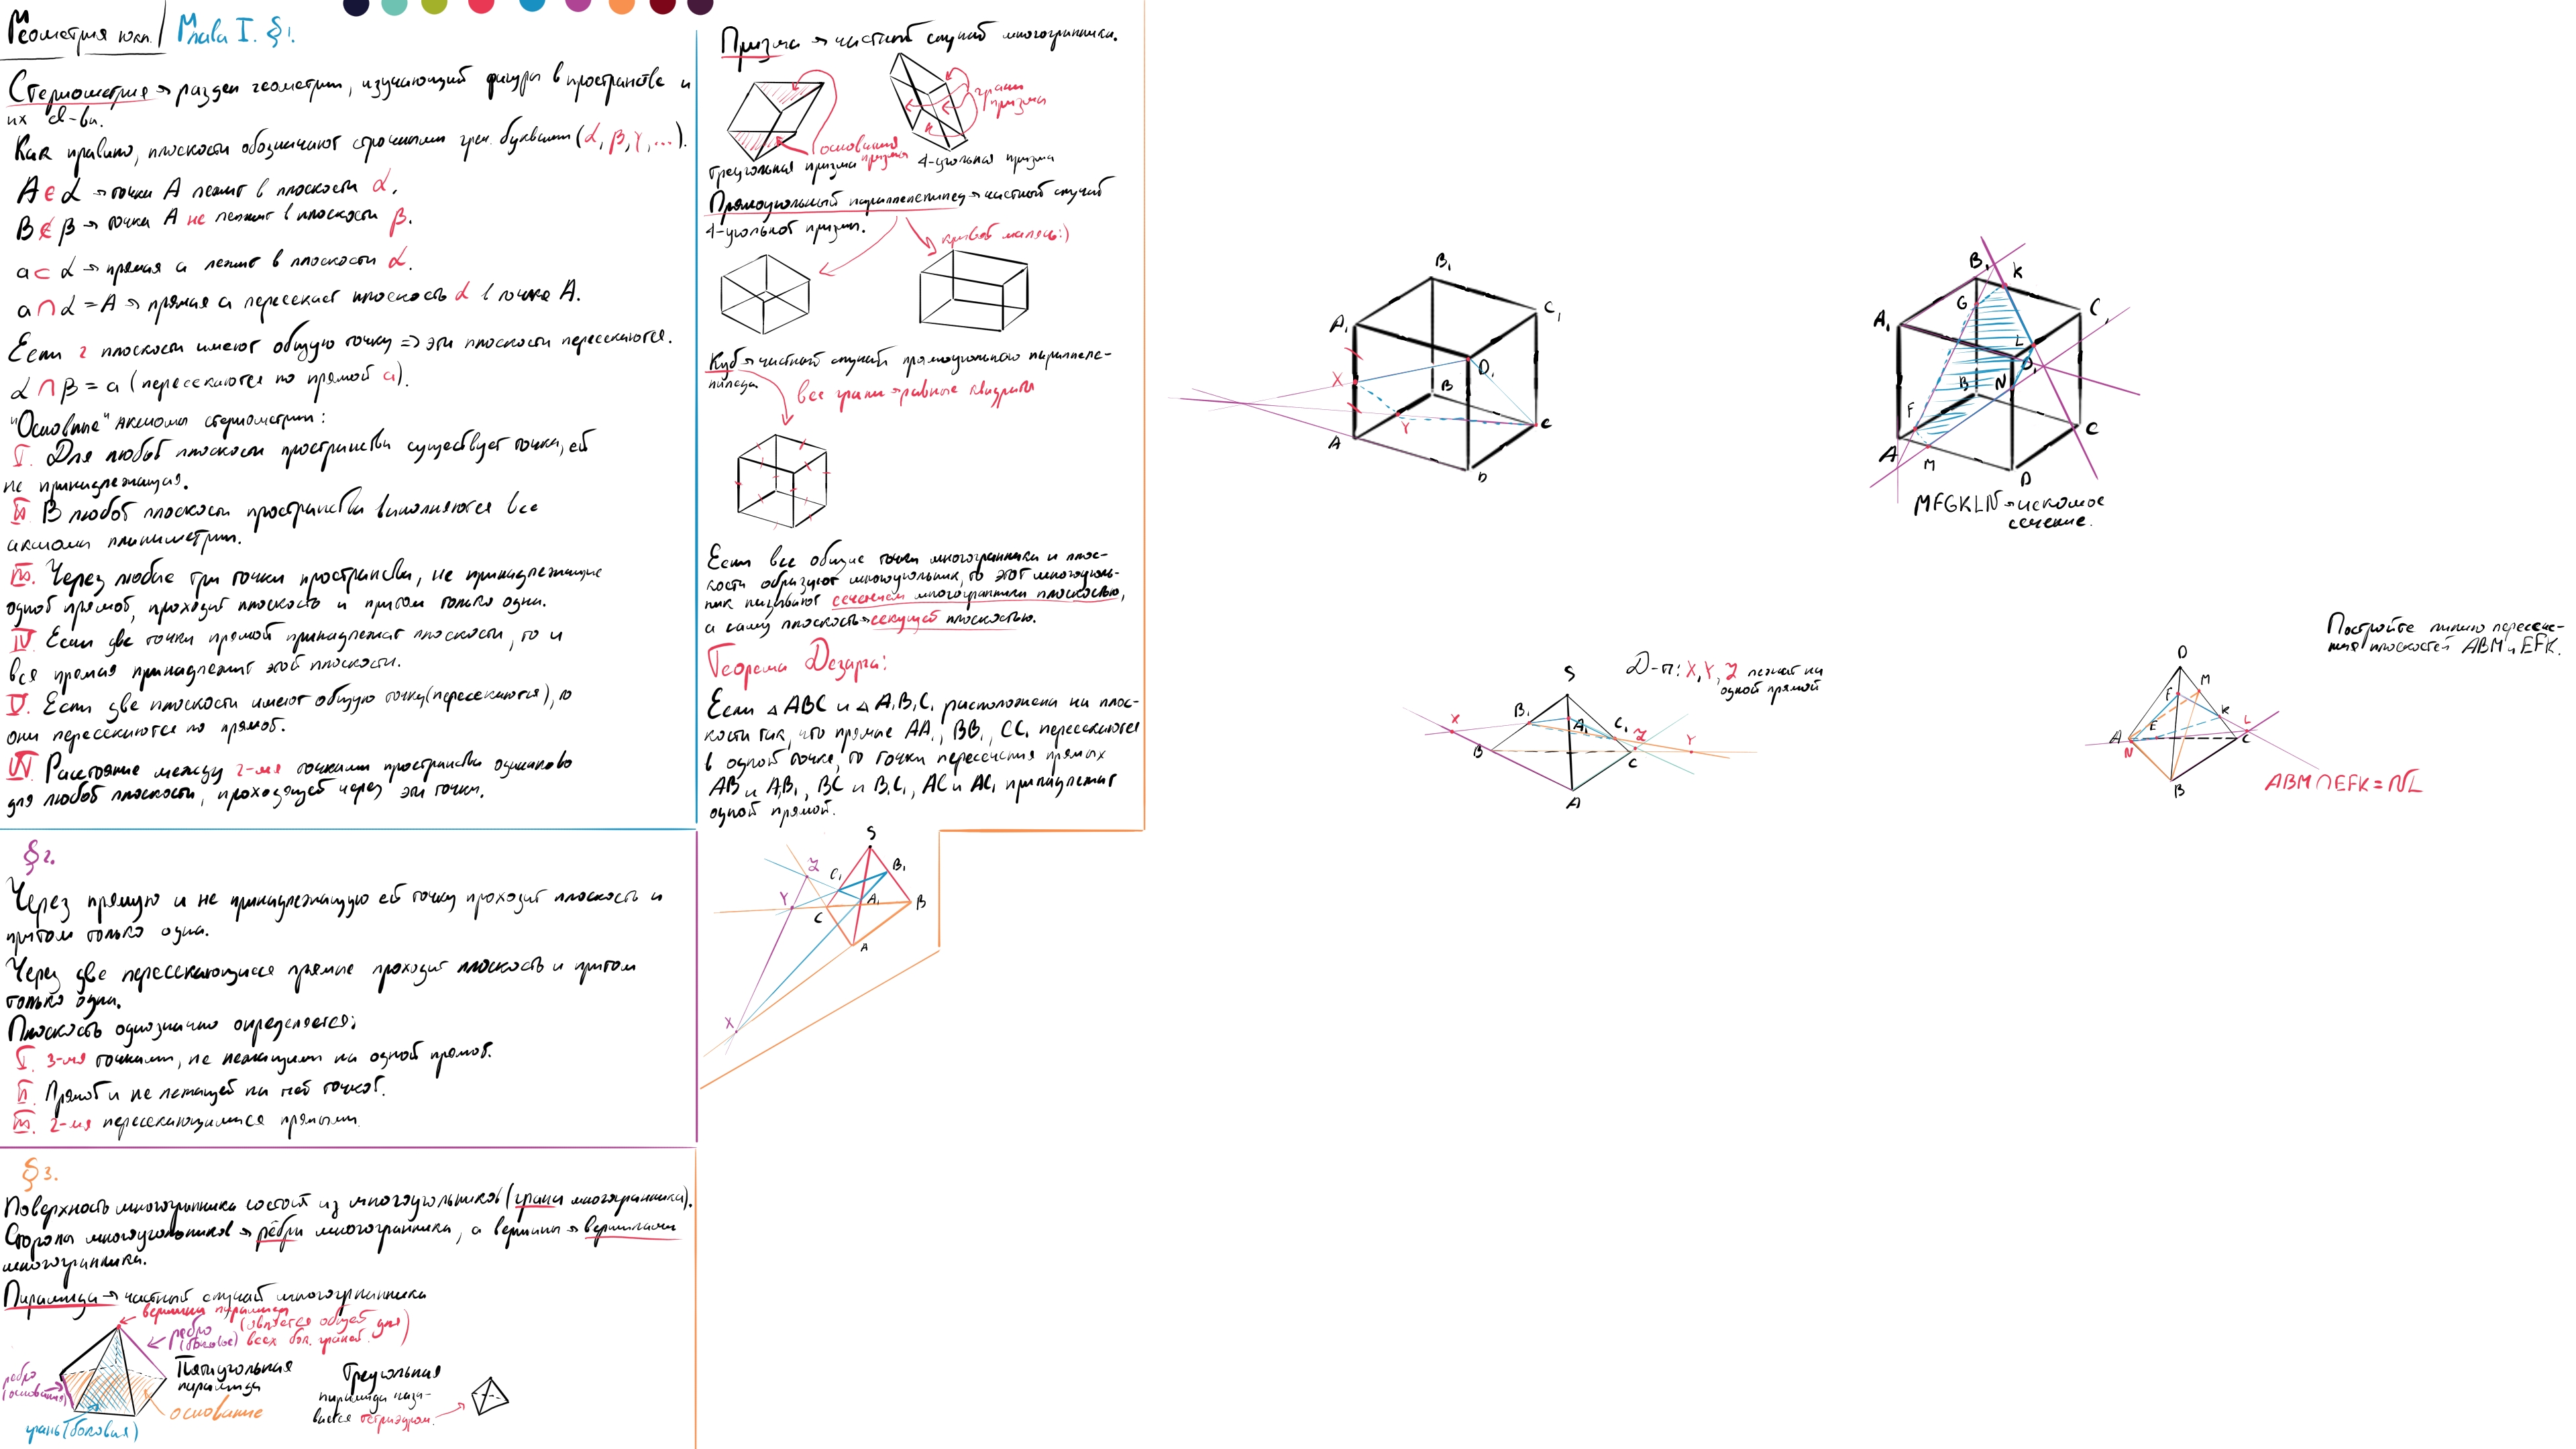 Геометрия 10кл. / Глава I. §1.
Стереометрия → раздел геометрии, изучающий фигуры в пространстве и
их св-ва.
Как правило, плоскости обозначают строчными греч. буквами (α, β, γ, ...).
A ∈ α → точка A лежит в плоскости α.
B ∉ β → точка A не лежит в плоскости β.
a ⊂ α → прямая a лежит в плоскости α.
a ∩ α = A → прямая a пересекает плоскость α в точке A.
Если 2 плоскости имеют общую точку => эти плоскости пересекаются.
α ∩ β = a (пересекаются по прямой a).
"Основные" аксиомы стереометрии:
I. Для любой плоскости пространства существует точка, ей
не принадлежащая.
II В любой плоскости пространства выполняются все
аксиомы планиметрии.
III. Через любые три точки пространства, не принадлежащие
одной прямой, проходит плоскость и притом только одна.
IV Если две точки прямой принадлежат плоскости, то и
вся прямая принадлежит этой плоскости.
V. Если две плоскости имеют общую точку (пересекаются), то
они пересекаются по прямой.
VI Расстояние между 2-мя точками пространства одинаково
для любой плоскости, проходящей через эти точки.
§2.
Через прямую и не принадлежащую ей точку проходит плоскость и
притом только одна.
Через две пересекающиеся прямые проходит плоскость и притом
только одна.
Плоскость однозначно определяется:
I. 3-мя точками, не лежащими на одной прямой.
II. Прямой и не лежащей на ней точкой.
III. 2-мя пересекающимися прямыми.
§3.
Поверхность многогранника состоит из многоугольников (грани многогранника).
Стороны многоугольников → рёбра многогранника, а вершины → вершинами
многогранника.
Пирамида → частный случай многогранника
вершина пирамиды
(является общей для
всех бок. граней.)
ребро
(боковое)
ребро
(основания)
Пятиугольная
пирамида
основание
грань (боковая)
Треугольная
пирамида назы-
вается тетраэдром.
Призма → частный случай многогранника.
грани
призмы
основания
призмы
треугольная призма
4-угольная призма
Прямоугольный параллелепипед → частный случай
4-угольной призмы.
кривой малясь:)
Куб → частный случай прямоугольного параллеле-
пипеда
все грани → равные квадраты
Если все общие точки многогранника и плос-
кости образуют многоугольник, то этот многоуголь-
ник называют сечением многогранника плоскостью,
а саму плоскость → секущей плоскостью.
Теорема Дезарга:
Если △ABC и △A₁B₁C₁ расположены на плос-
кости так, что прямые AA₁, BB₁, CC₁ пересекаются
в одной точке, то точки пересечения прямых
AB и A₁B₁, BC и B₁C₁, AC и AC₁ принадлежат
одной прямой.
S
Z
B₁
C₁
Y
A₁
B
C
A
X
B₁
C₁
A₁
D₁
X
B
Y
C
A
D
B₁
K
G
A₁
C₁
L
D₁
B
N
F
C
A
M
D
MFGKLN → искомое
сечение.
S
Д-ть: X, Y, Z лежат на
одной прямой
X
B₁
A₁
C₁
Z
Y
B
C
A
Постройте линию пересече-
ния плоскостей ABM и EFK.
D
F
M
K
L
E
A
N
C
B
ABM ∩ EFK = NL